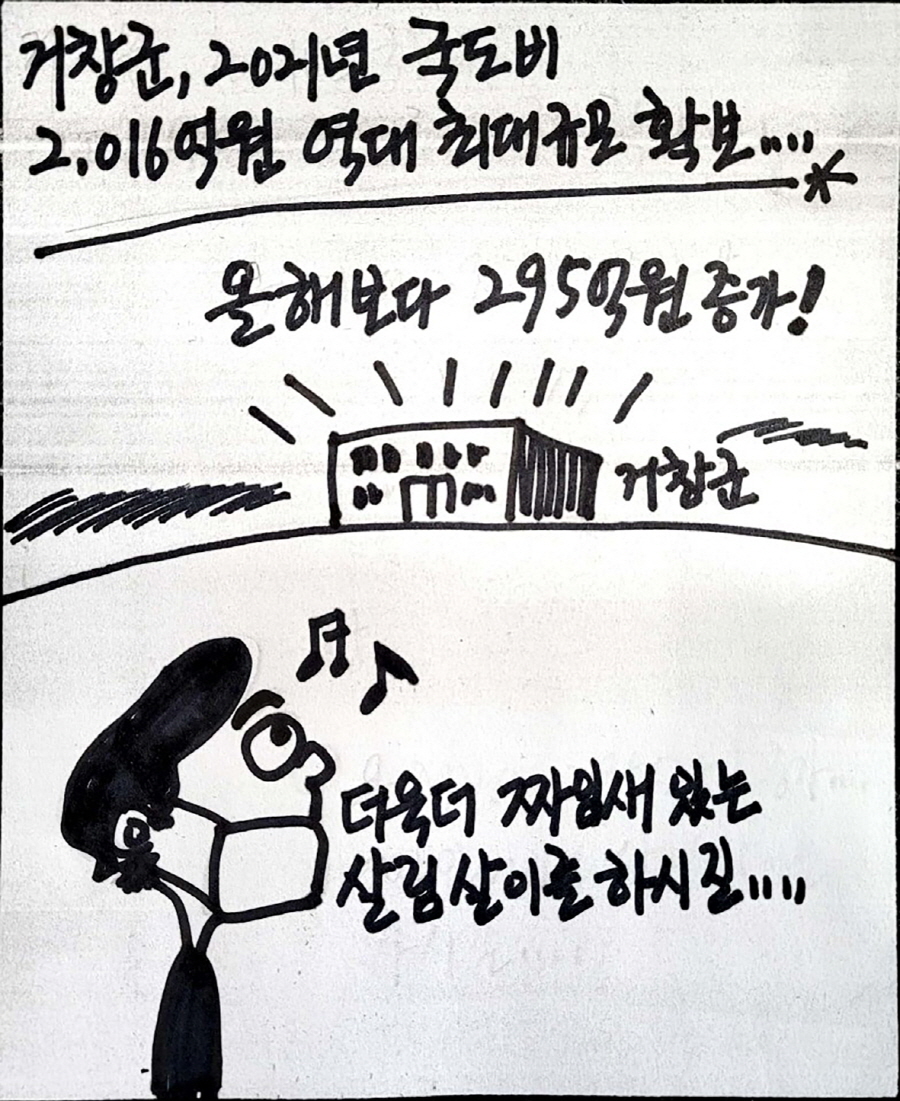 거창군, 2021년 국도비
2,016억원 역대 최대규모 확보....
올해보다 295억원 증가!
거창군
더욱더 짜임새 있는
살림살이를 하시길....